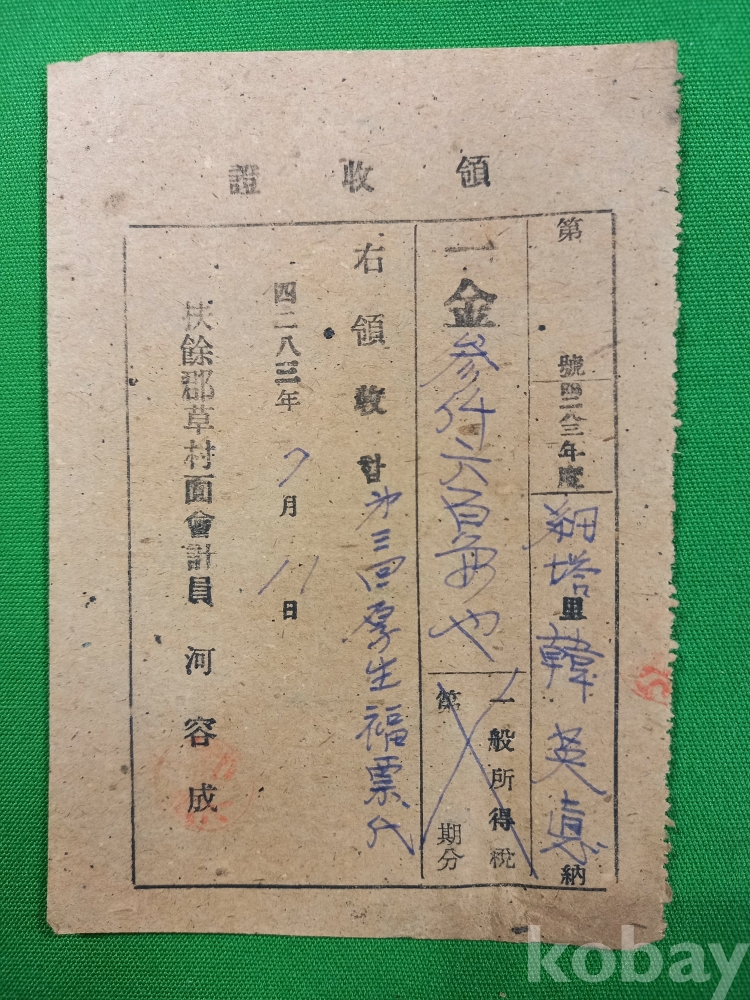 領收證
第 號 四二八三年度
翔塔里 韓英惠 納
一金 參仟六百 也
一般所得稅
第 期分
右領收함 第三回厚生福票代
四二八三年 7月 11日
扶餘郡草村面會計員 河容成
kobay